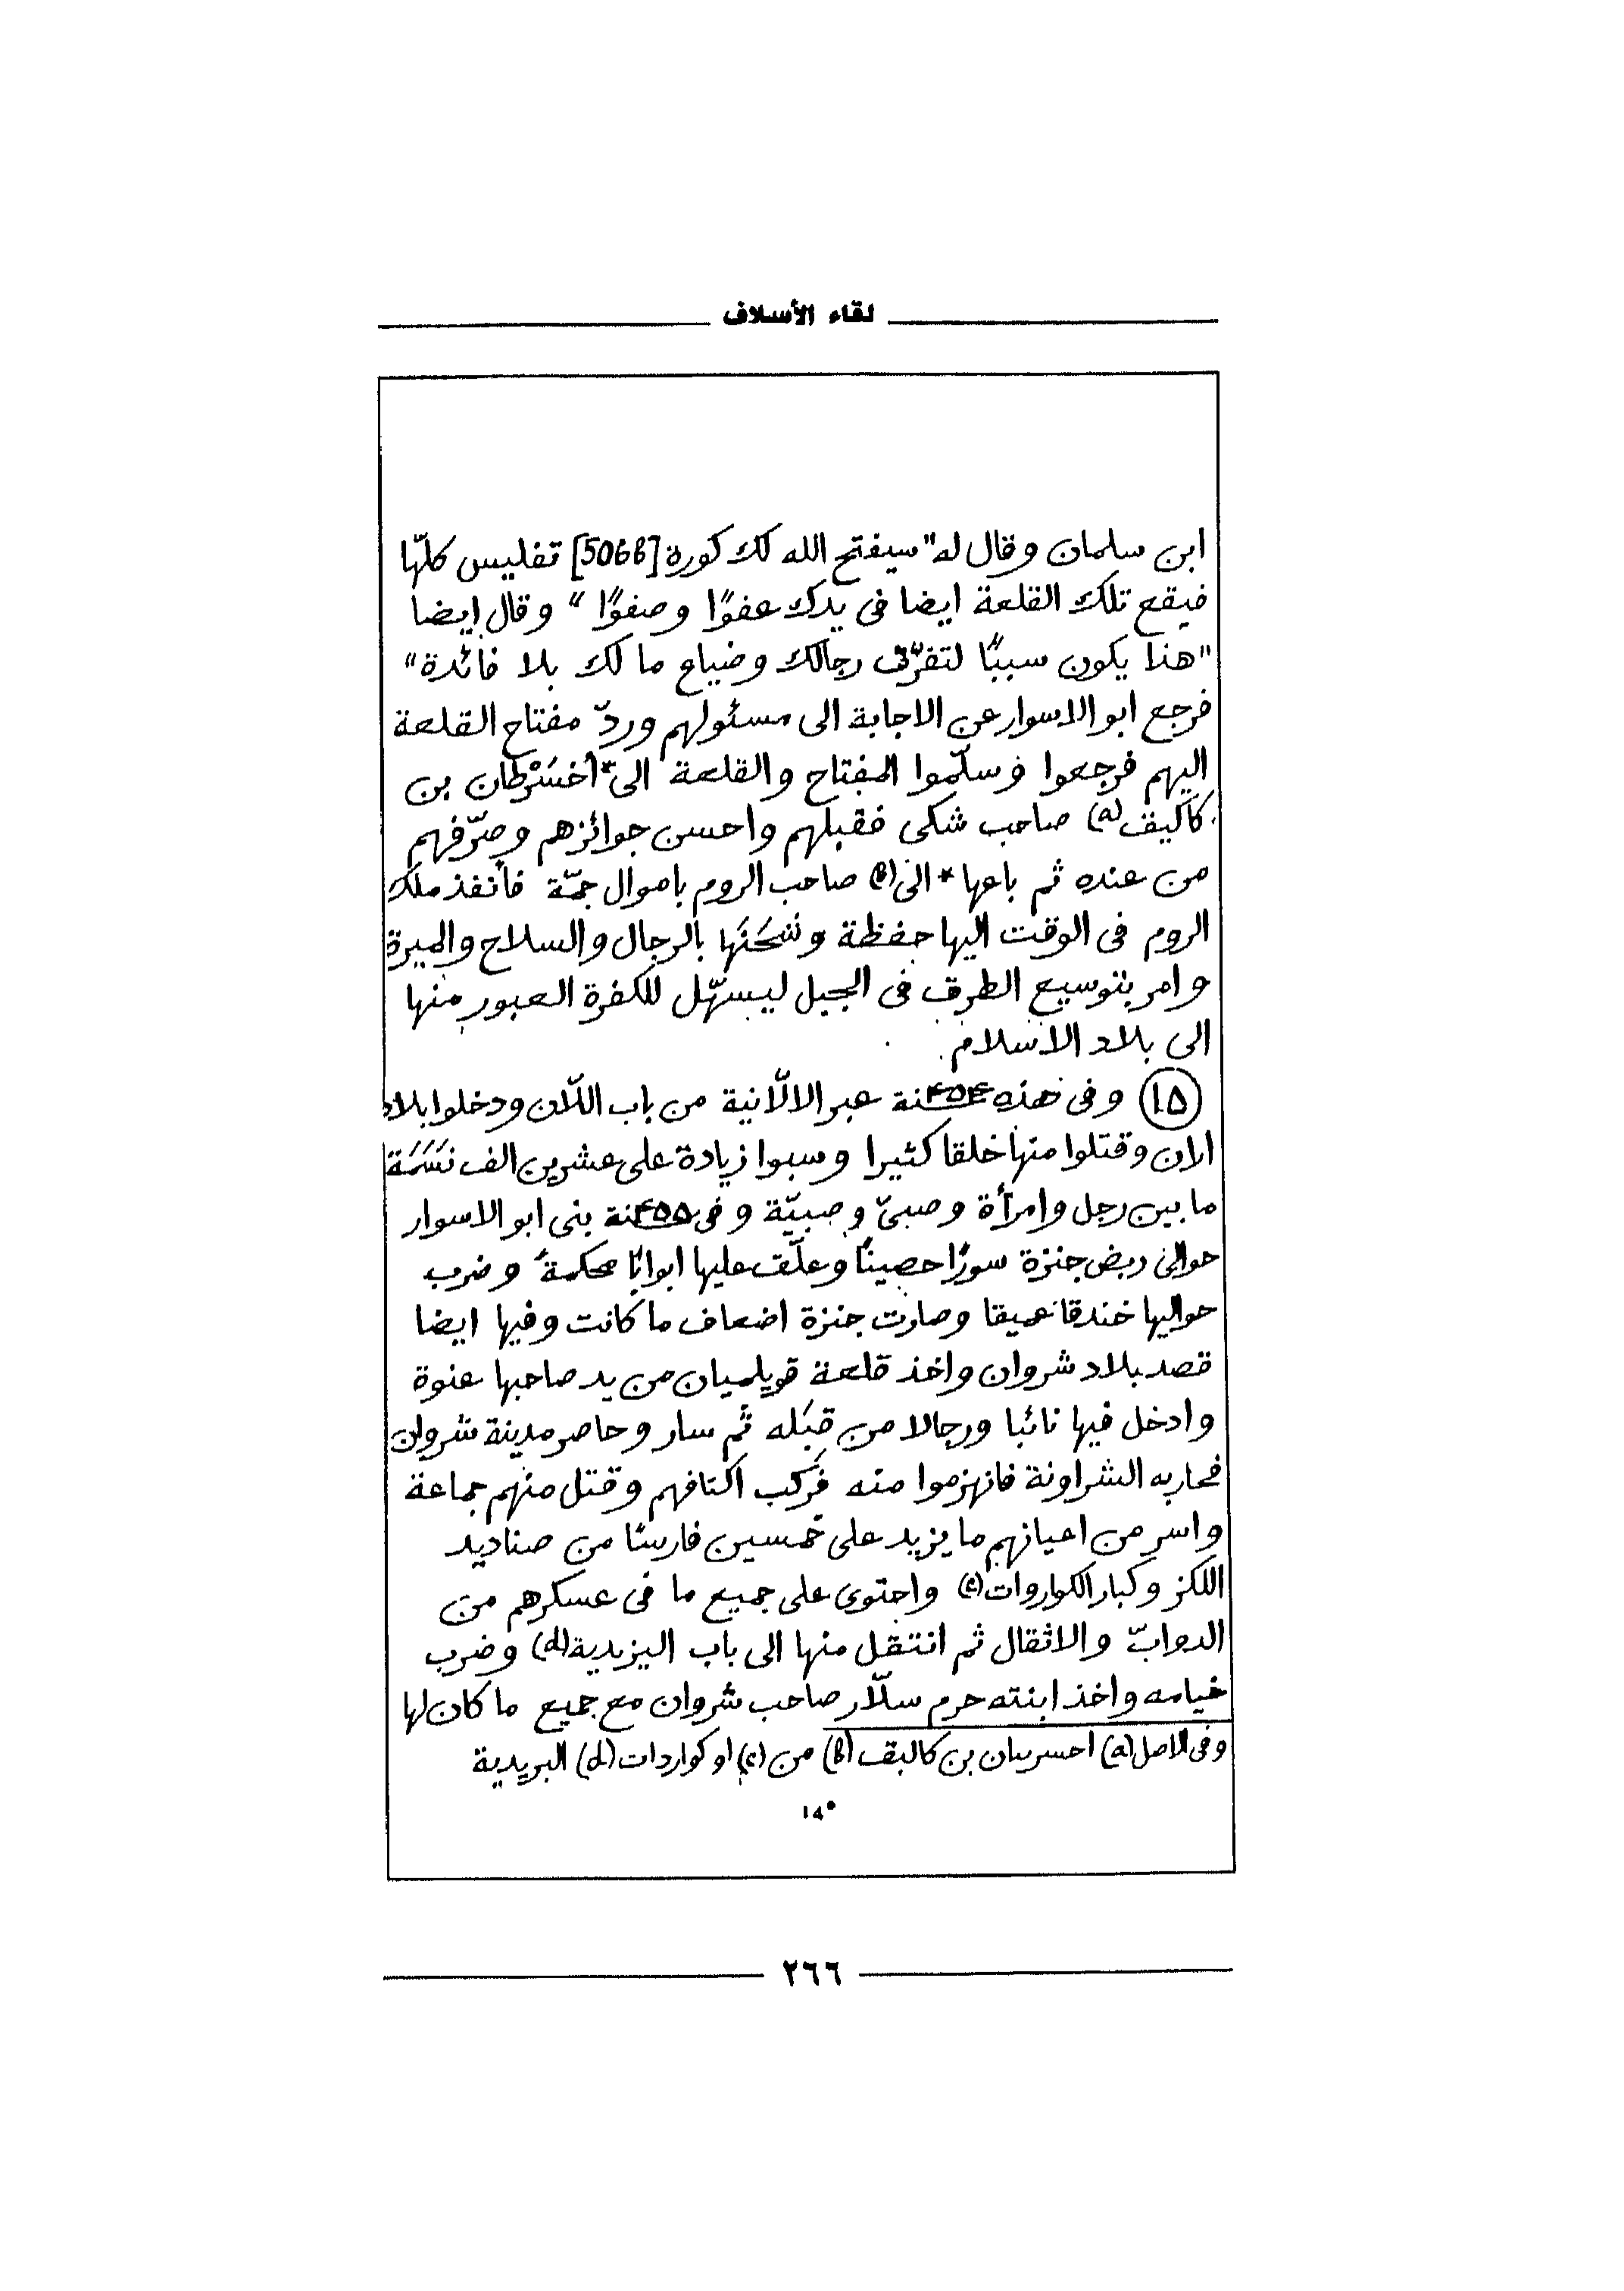 لقاء الأسلاف
ابن سلمان وقال له "سيفتح الله لك كورة [506b] تفليس كلّها
فيقع تلك القلعة ايضا فى يدك عفوًا وصفوًا" وقال ايضا
"هذا يكون سببًا لتفرّق رجالك وضياع مالك بلا فائدة"
فرجع ابو الاسوار عن الاجابة الى مسئولهم وردّ مفتاح القلعة
اليهم فرجعوا وسلّموا المفتاح والقلعة الى *أخسَرْطان بن
كاكيق (a) صاحب شكى فقبلهم واحسن جوائزهم وصرّفهم
من عنده ثم باعها *الى (b) صاحب الروم باموال جمّة فأنفذ ملك
الروم فى الوقت اليها حفظة وشَحَنَها بالرجال والسلاح والميرة
وامر بتوسيع الطرق فى الجبل ليسهّل للكفرة العبور منها
الى بلاد الاسلام.
(١٥) وفى هذه سنة ۴۵۴ عبر الالّانية من باب اللّان ودخلوا بلاد
اران وقتلوا منها خلقا كثيرا وسبوا زيادة على عشرين الف نَسَمَة
ما بين رجل وامرأة وصبىّ وصبيّة وفى سنة ۴۵۵ بنى ابو الاسوار
حوالى ربض جنزة سورًا حصينًا وعلّق عليها ابوابًا محكمةً وضرب
حواليها خندقا عميقا وصارت جنزة اضعاف ما كانت وفيها ايضا
قصد بلاد شروان واخذ قلعة قويلميان من يد صاحبها عنوة
وادخل فيها نائبا ورجالا من قِبَله ثم سار وحاصر مدينة شروان
فحاربه الشراونة فانهزموا منه فركب اكتافهم وقتل منهم جماعة
واسر من اعيانهم ما يزيد على خمسين فارسًا من صناديد
اللكز وكبار الكواروات (c) واحتوى على جميع ما فى عسكرهم من
الدوابّ والاثقال ثم انتقل منها الى باب اليزيدية (d) وضرب
خيامه واخذ ابنته حرم سلّار صاحب شروان مع جميع ما كان لها
وفى الاصل (a) احسرسان بن كاليق (b) من (c) او كواردات (d) البريدية
١۴٠
٢٦٦